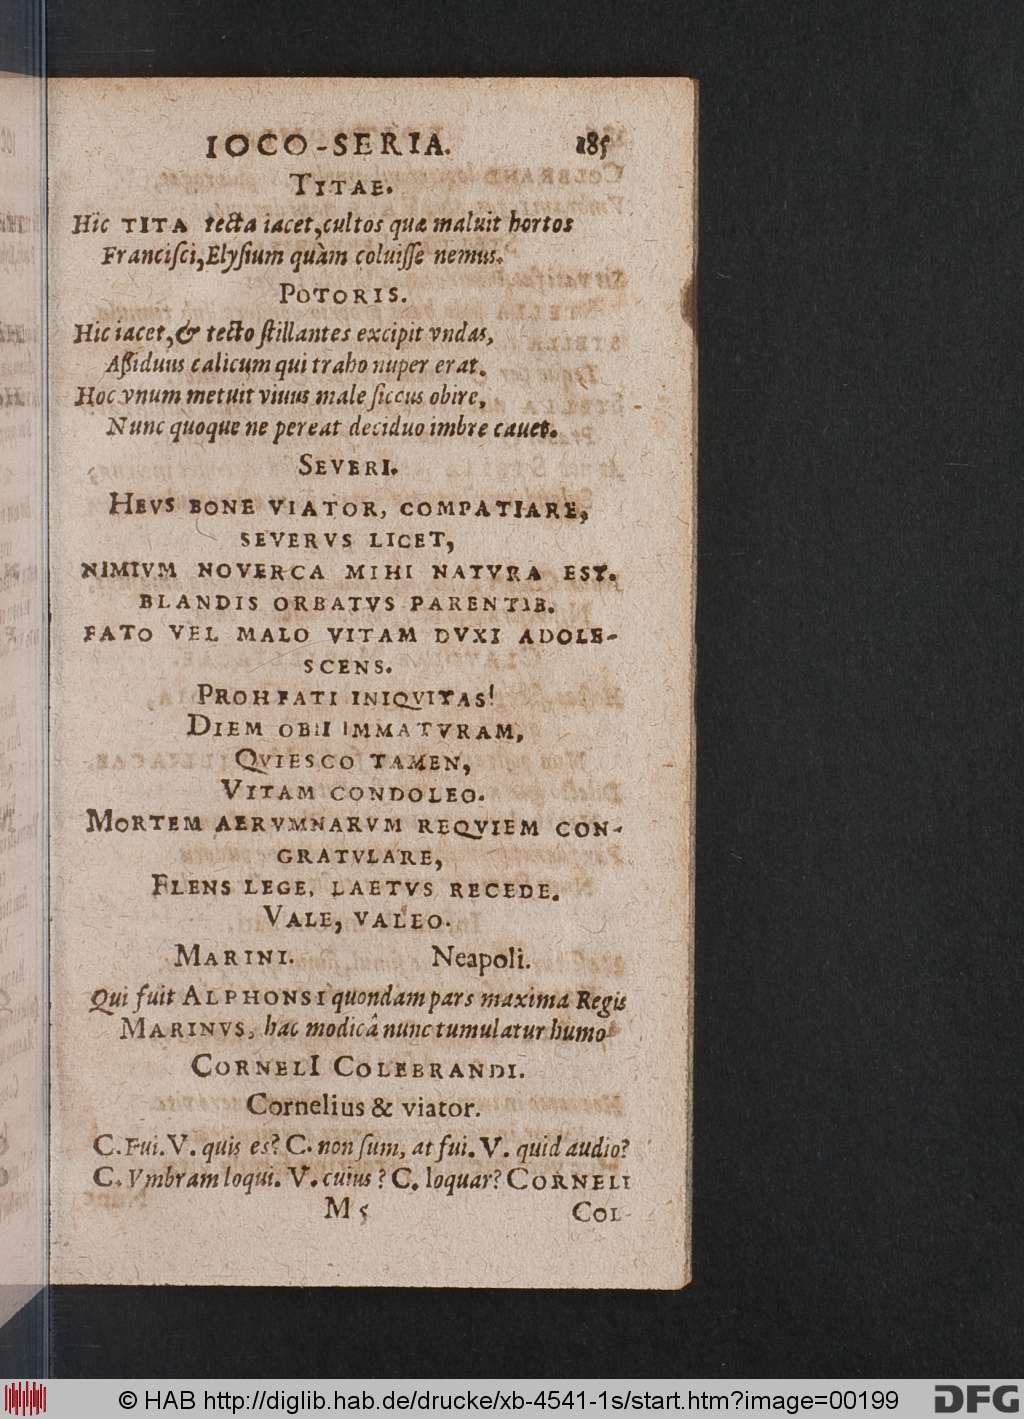 IOCO-SERIA. 185
TITAE.
Hic TITA tecta iacet, cultos quæ maluit hortos
Franciſci, Elyſium quàm coluiſſe nemus.
POTORIS.
Hic iacet, & tecto ſtillantes excipit vndas,
Aſſiduus calicum qui traho nuper erat.
Hoc vnum metuit viuus male ſiccus obire,
Nunc quoque ne pereat deciduo imbre cauet.
SEVERI.
HEVS BONE VIATOR, COMPATIARE,
SEVERVS LICET,
NIMIVM NOVERCA MIHI NATVRA EST.
BLANDIS ORBATVS PARENTIB.
FATO VEL MALO VITAM DVXI ADOLE-
SCENS.
PROH FATI INIQVITAS!
DIEM OBII IMMATVRAM,
QVIESCO TAMEN,
VITAM CONDOLEO.
MORTEM AERVMNARVM REQVIEM CON-
GRATVLARE,
FLENS LEGE, LAETVS RECEDE.
VALE, VALEO.
MARINI. Neapoli.
Qui fuit ALPHONSI quondam pars maxima Regis
MARINVS, hac modicâ nunc tumulatur humo
CORNELI COLEBRANDI.
Cornelius & viator.
C. Fui. V. quis es? C. non ſum, at fui. V. quid audio?
C. Vmbram loqui. V. cuius? C. loquar? CORNELI
M 5 COL-
© HAB http://diglib.hab.de/drucke/xb-4541-1s/start.htm?image=00199 DFG